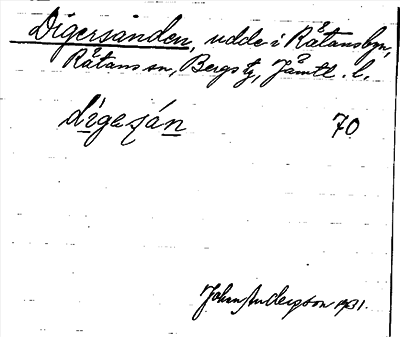 Digersanden, udde i Råtansbyn,
Råtans sn, Bergs tg, Jämtl. l.
digesán 70
John Andersson 1931.